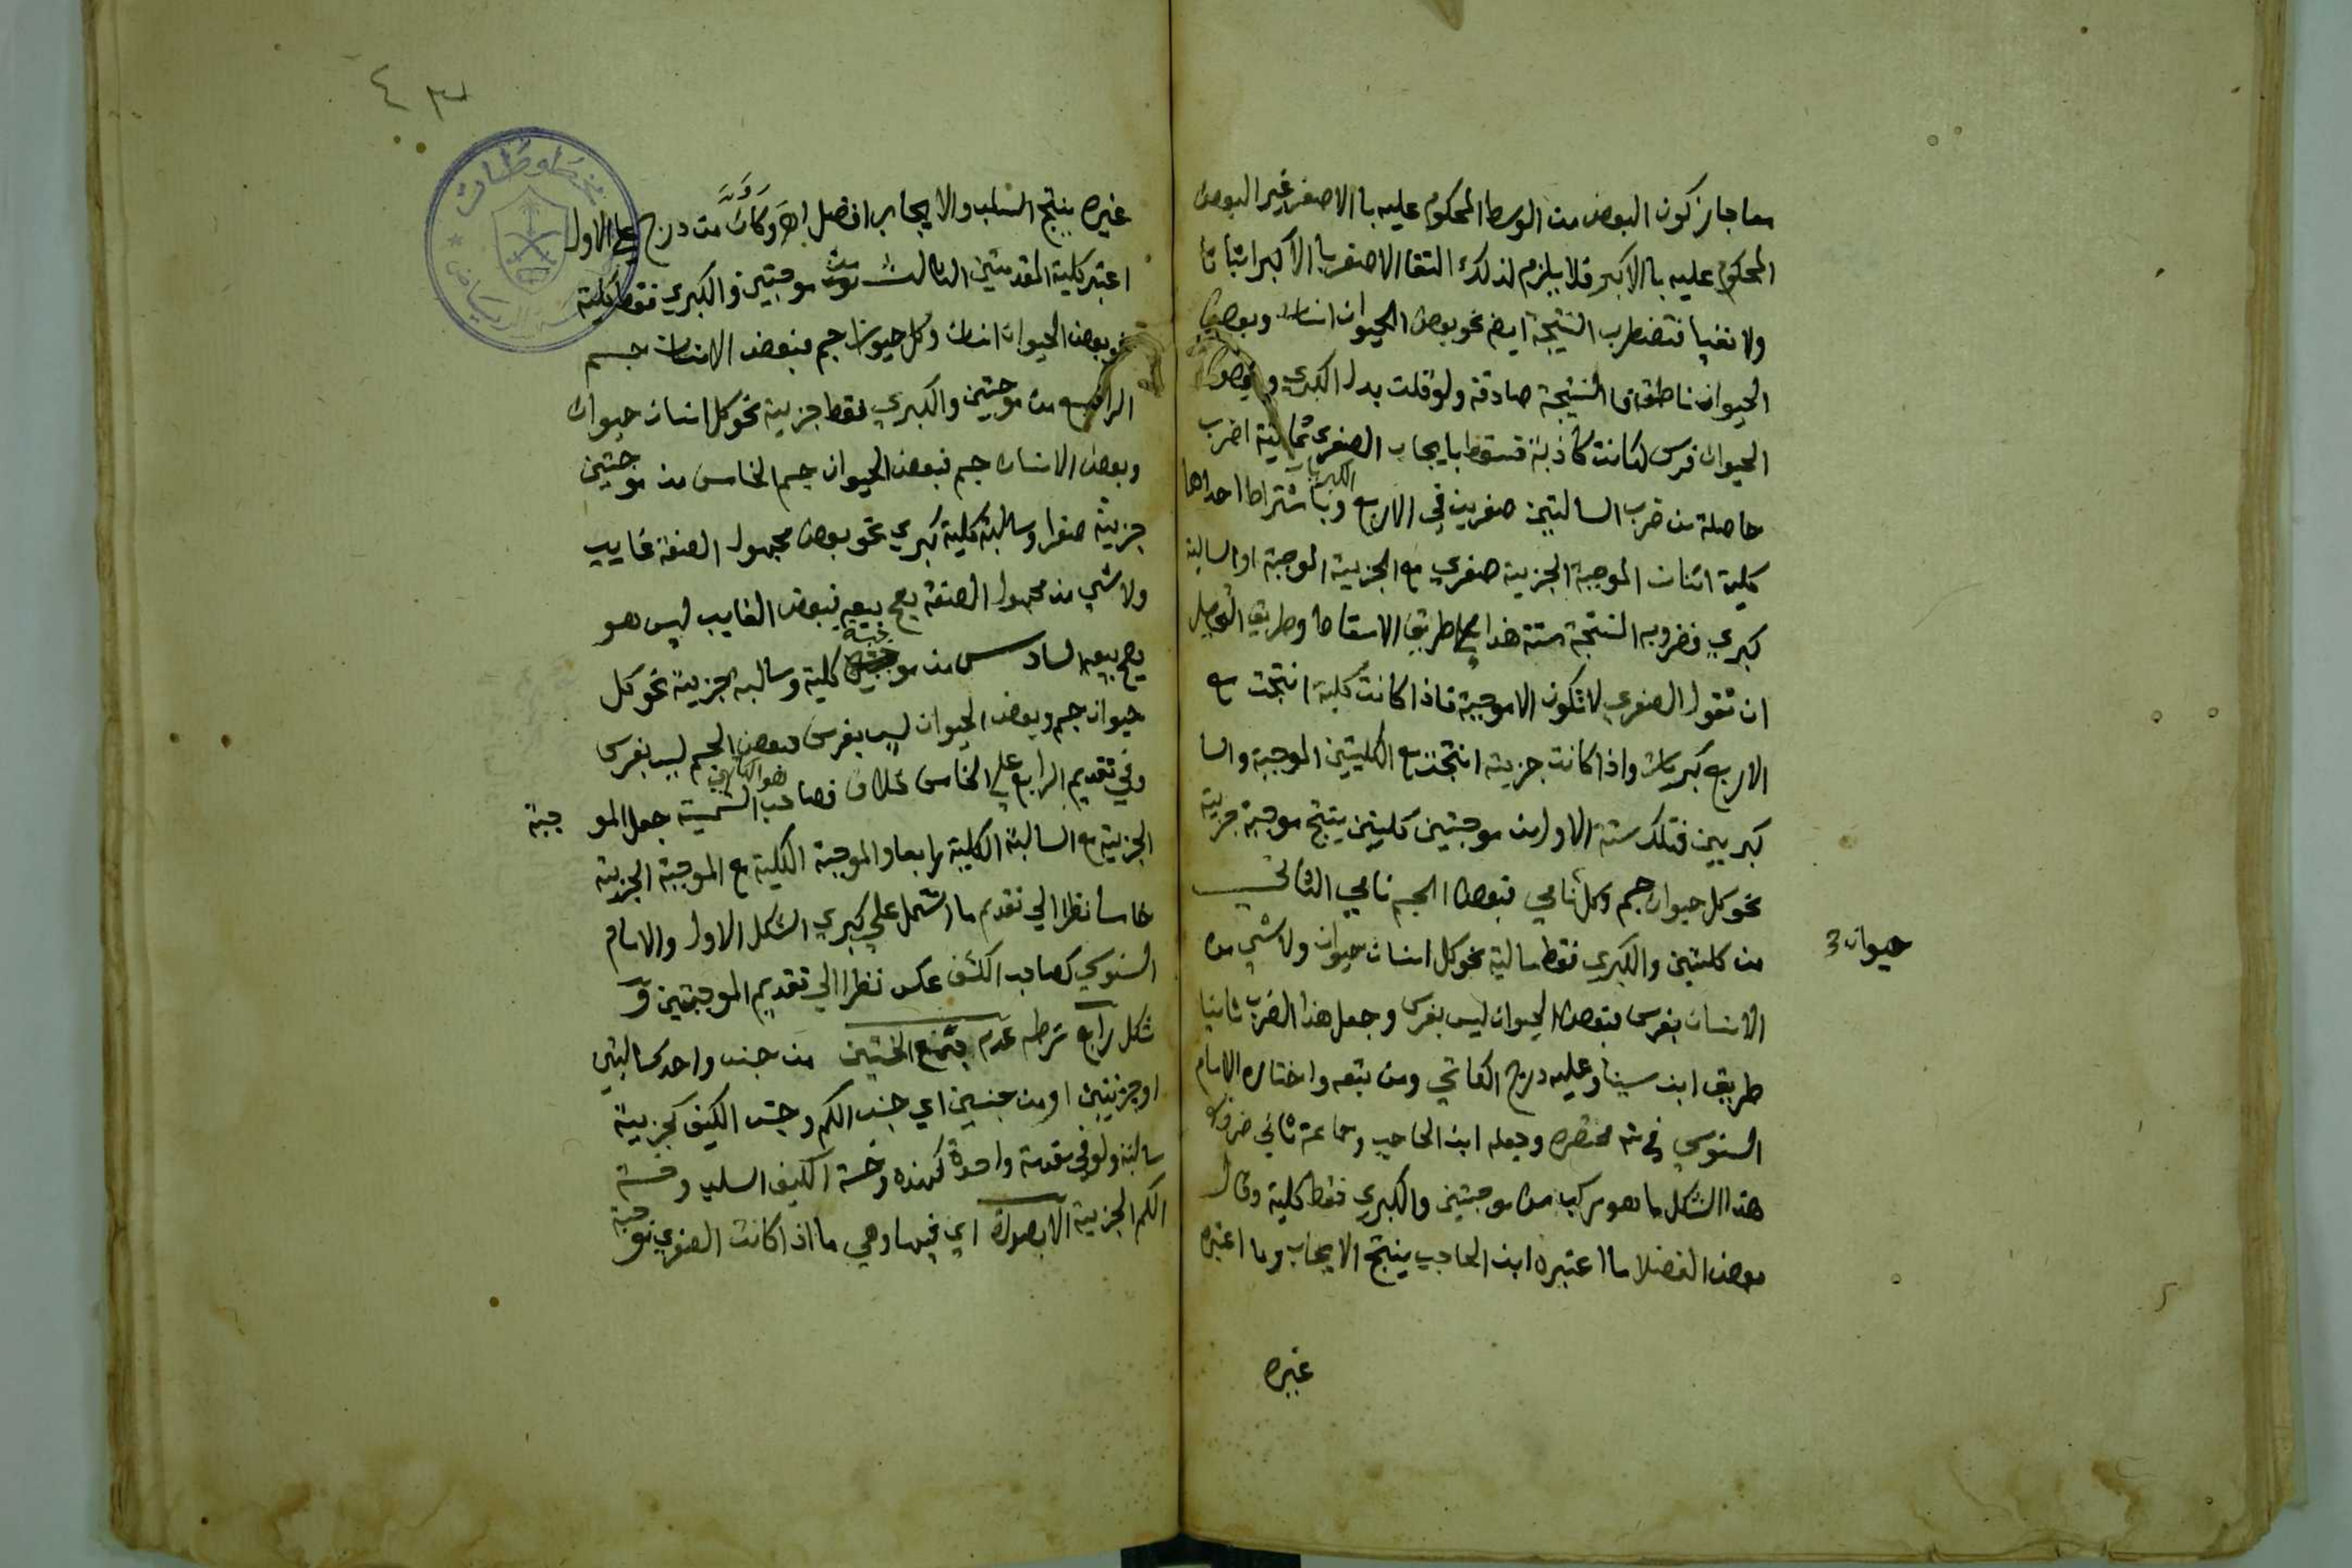 معا جاز كون البعض من الوسط المحكوم عليه بالاصغر غير البعض
المحكوم عليه بالاكبر فلا يلزم لذلك التقا الاصغر بالاكبر اثباتا
ولا نفيا فتضطرب النتيجة ايض نحو بعض الحيوان انسان وبعض
الحيوان ناطق فالنتيجة صادقة ولو قلت بدل الكبري وبعض
الحيوان فرس لكانت كاذبة فسقط بايجاب الصغري ثمانية اضرب
حاصلة من ضرب السالبتين صغريين في الاربع الكبريات وباشتراط احداهما
كلية اثنان الموجبة الجزيية صغري مع الجزيية الموجبة او السالبة
كبري فضروبه المنتجة ستة هذا علي طريق الاسقاط وطريق التحصيل
ان تقول الصغري لا تكون الا موجبة فاذا كانت كلية انتجت مع
الاربع كبريات واذا كانت جزيية انتجت مع الكليتين الموجبة والسا
كبريين فتلك ستة الاول من موجبتين كليتين ينتج موجبة جزيية
نحو كل حيوان جسم وكل نامي فبعض الجسم نامي الثاني
حيوان 3
من كليتين والكبري فقط سالبة نحو كل انسان حيوان ولا شي من
الانسان بفرس فبعض الحيوان ليس بفرس وجعل هذا الضرب ثانيا
طريق ابن سينا وعليه درج الكاتبي ومن تبعه واختاره الامام
السنوسي في مختصره وجعله ابن الحاجب وجماعة ثاني ضروب
هذا الشكل ما هو مركب من موجبتين والكبري فقط كلية وقال
بعض الفضلا ما اعتبره ابن الحاجب ينتج الايجاب وما اعتبره
غيره
٤٣
غيره ينتج السلب والايجاب افضل اهـ وكان من درج علي الاول
اعتبر كلية المقدمتين الثالث من موجبتين والكبري فقط كلية
نحو بعض الحيوان انسان وكل حيوان جسم فبعض الانسان جسم
الرابع من موجبتين والكبري فقط جزيية نحو كل انسان حيوان
وبعض الانسان جسم فبعض الحيوان جسم الخامس من موجبتين
جزيية صغرا وسالبة كلية كبري نحو بعض مجهول الصفة غايب
ولا شي من مجهول الصفة يصح بيعه فبعض الغايب ليس هو
يصح بيعه السادس من موجبة كلية وسالبة جزيية نحو كل
حيوان جسم وبعض الحيوان ليس بفرس فبعض الجسم ليس بفرس
وفي تقديم الرابع علي الخامس خلاف فصاحب الشمسية هو الكاتبي جعل الموجبة
الجزيية مع السالبة الكلية رابعا والموجبة الكلية مع الموجبة الجزيية
خامسا نظرا الي تقديم ما اشتمل علي كبري الشكل الاول والامام
السنوسي كصاحب الكشف عكس نظرا الي تقديم الموجبتين و
شكل رابع شرطه عدم جمع الخستين من جنس واحد كسالبتين
او جزيتين او من جنسين اي جنس الكم وجنس الكيف كجزيية
سالبة ولو في مقدمة واحدة كهذه وخسة الكيف السلب وخسة
الكم الجزيية الا بصورة اي فيها وهي ما اذا كانت الصغري موجبة